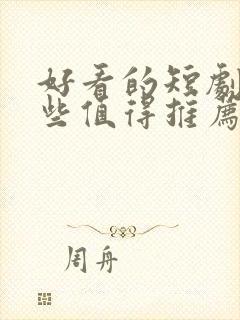 好看的短劇
些值得推薦
周舟